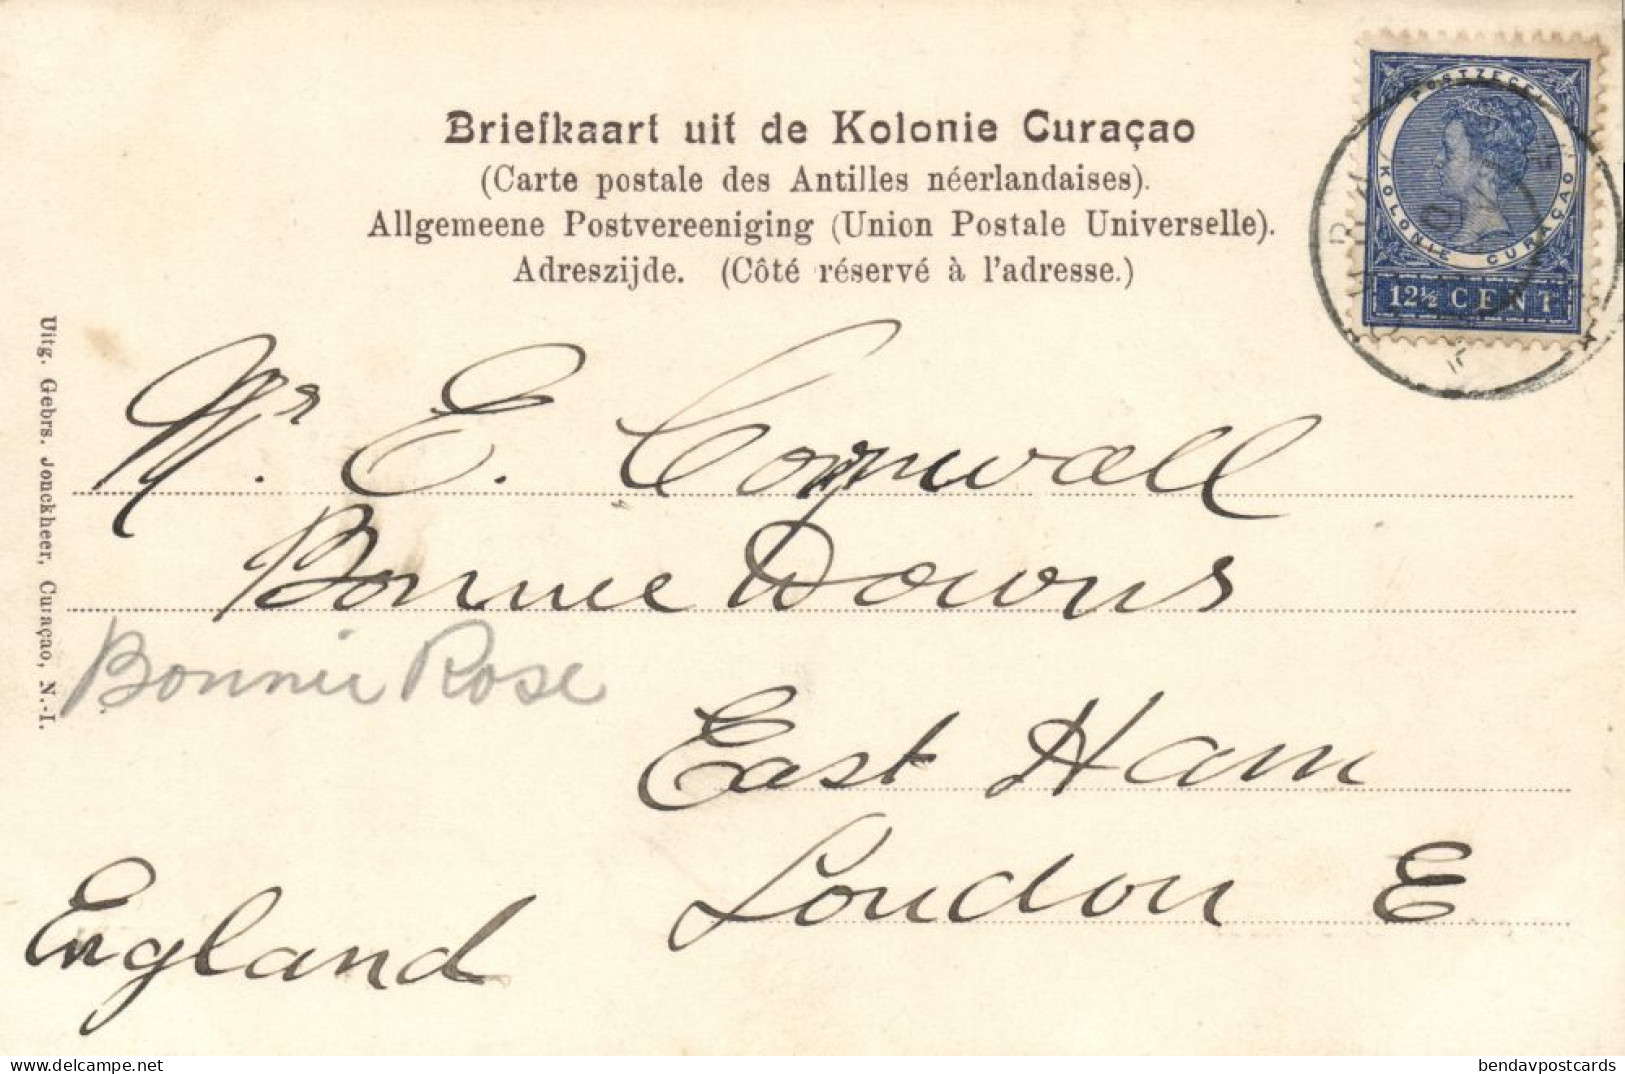 Briefkaart uit de Kolonie Curaçao
(Carte postale des Antilles néerlandaises).
Allgemeene Postvereeniging (Union Postale Universelle).
Adreszijde. (Côté réservé à l'adresse.)
POSTZEGEL
KOLONIE CURAÇAO
12½ CENT
Uitg. Gebrs. Jonckheer, Curaçao, N.-I.
Mr. E. Cornwall
Bonnie Downs
Bonnie Rose
East Ham
London E
England
delcampe.net
bendavpostcards